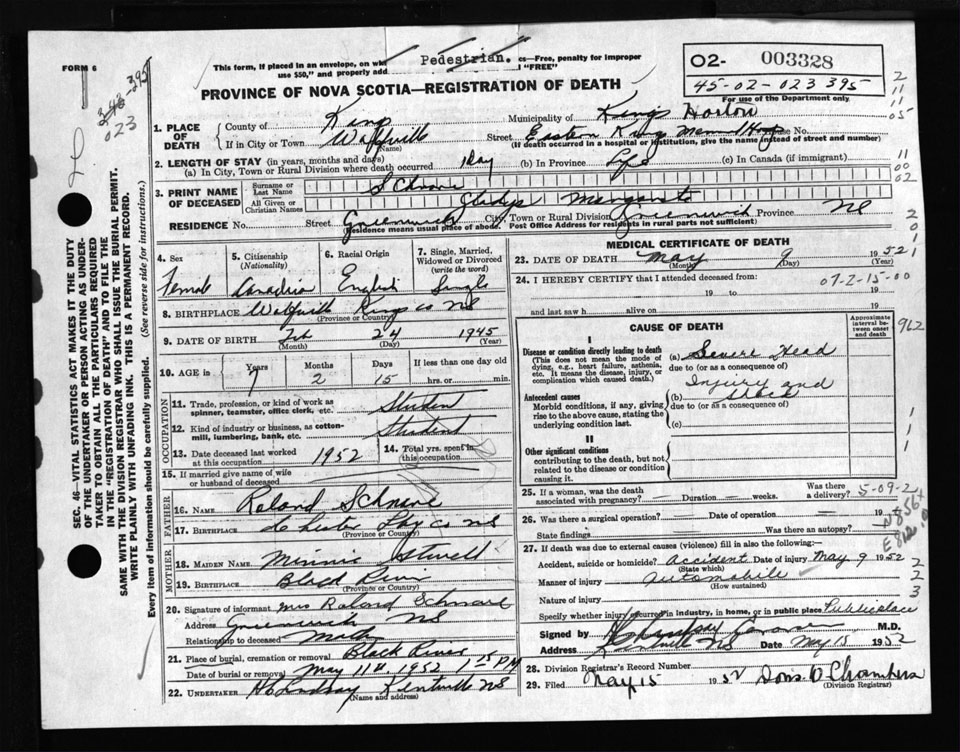 FORM 6
This form, if placed in an envelope, on wh
use $50," and properly add
Pedestrian.
cs—Free, penalty for improper
"FREE"
PROVINCE OF NOVA SCOTIA—REGISTRATION OF DEATH
O2- 003328
45-02-023395
For use of the Department only.
395
023
1. PLACE OF DEATH
County of Kings
Municipality of Kings Horton
If in City or Town Wolfville
(Name)
Street Eastern Kings Mem Hosp House No.
(If death occurred in a hospital or institution, give the name instead of street and number)
2. LENGTH OF STAY (in years, months and days)
(a) In City, Town or Rural Division where death occurred 1 Day (b) In Province Life (c) In Canada (if immigrant)
3. PRINT NAME OF DECEASED
Surname or Last Name Schnare
All Given or Christian Names Gladys Margaret
RESIDENCE No. Street Greenwich City, Town or Rural Division Greenwich Province NS
(Residence means usual place of abode. Post Office Address for residents in rural parts not sufficient)
4. Sex
Female
5. Citizenship (Nationality)
Canadian
6. Racial Origin
English
7. Single, Married, Widowed or Divorced (write the word)
Single
8. BIRTHPLACE Wolfville Kings co NS
(Province or Country)
9. DATE OF BIRTH Feb 24 1945
(Month) (Day) (Year)
10. AGE in
Years 7
Months 2
Days 15
If less than one day
hrs. or min.
OCCUPATION
11. Trade, profession, or kind of work as spinner, teamster, office clerk, etc. Student
12. Kind of industry or business, as cotton-mill, lumbering, bank, etc. Student
13. Date deceased last worked at this occupation 1952
14. Total yrs. spent in this occupation
15. If married give name of wife or husband of deceased
FATHER
16. Name Roland Schnare
17. Birthplace Chester Lky co NS
(Province or Country)
MOTHER
18. Maiden Name Minnie
19. Birthplace Black River
(Province or Country)
20. Signature of informant Mrs Roland Schnare
Address Greenwich NS
Relationship to deceased Mother
21. Place of burial, cremation or removal Black River
Date of burial or removal May 11th, 1952 1 15 PM
22. UNDERTAKER H C Lindsay Kentville NS
(Name and Address)
MEDICAL CERTIFICATE OF DEATH
23. DATE OF DEATH May 9 1952
(Month) (Day) (Year)
24. I HEREBY CERTIFY that I attended deceased from:
07-2-15-00
19 to 19
and last saw h alive on 19
CAUSE OF DEATH
Approximate interval between onset and death
I
Disease or condition directly leading to death
(This does not mean the mode of dying, e.g., heart failure, asthenia, etc. It means the disease, injury, or complication which caused death.)
(a) Severe Head
due to (or as a consequence of)
Injury and
Antecedent causes
Morbid conditions, if any, giving rise to the above cause, stating the underlying condition last.
(b) Shock
due to (or as a consequence of)
(c)
II
Other significant conditions
contributing to the death, but not related to the disease or condition causing it.
25. If a woman, was the death associated with pregnancy? Duration weeks. Was there a delivery?
5-09-2
26. Was there a surgical operation? Date of operation 19
State findings Was there an autopsy?
N856
E812
27. If death was due to external causes (violence) fill in also the following:
Accident, suicide or homicide? Accident Date of injury May 9 1952
(State which)
Manner of injury Automobile
(How sustained)
Nature of injury
Specify whether injury occurred in industry, in home, or in public place Public place
Signed by M.D.
Address Kentville NS Date May 15 1952
28. Division Registrar's Record Number
29. Filed May 15 1952 Doris D Chambers
(Division Registrar)
SEC. 46—VITAL STATISTICS ACT MAKES IT THE DUTY
OF THE UNDERTAKER OR PERSON ACTING AS UNDER-
TAKER TO OBTAIN ALL THE PARTICULARS REQUIRED
IN THE "REGISTRATION OF DEATH" AND TO FILE THE
SAME WITH THE DIVISION REGISTRAR WHO SHALL ISSUE THE BURIAL PERMIT.
WRITE PLAINLY WITH UNFADING INK. THIS IS A PERMANENT RECORD.
Every item of information should be carefully supplied. (See reverse side for instructions.)
2
11
11
05
11
00
02
2
0
1
1
962
1
1
1
2
2
3